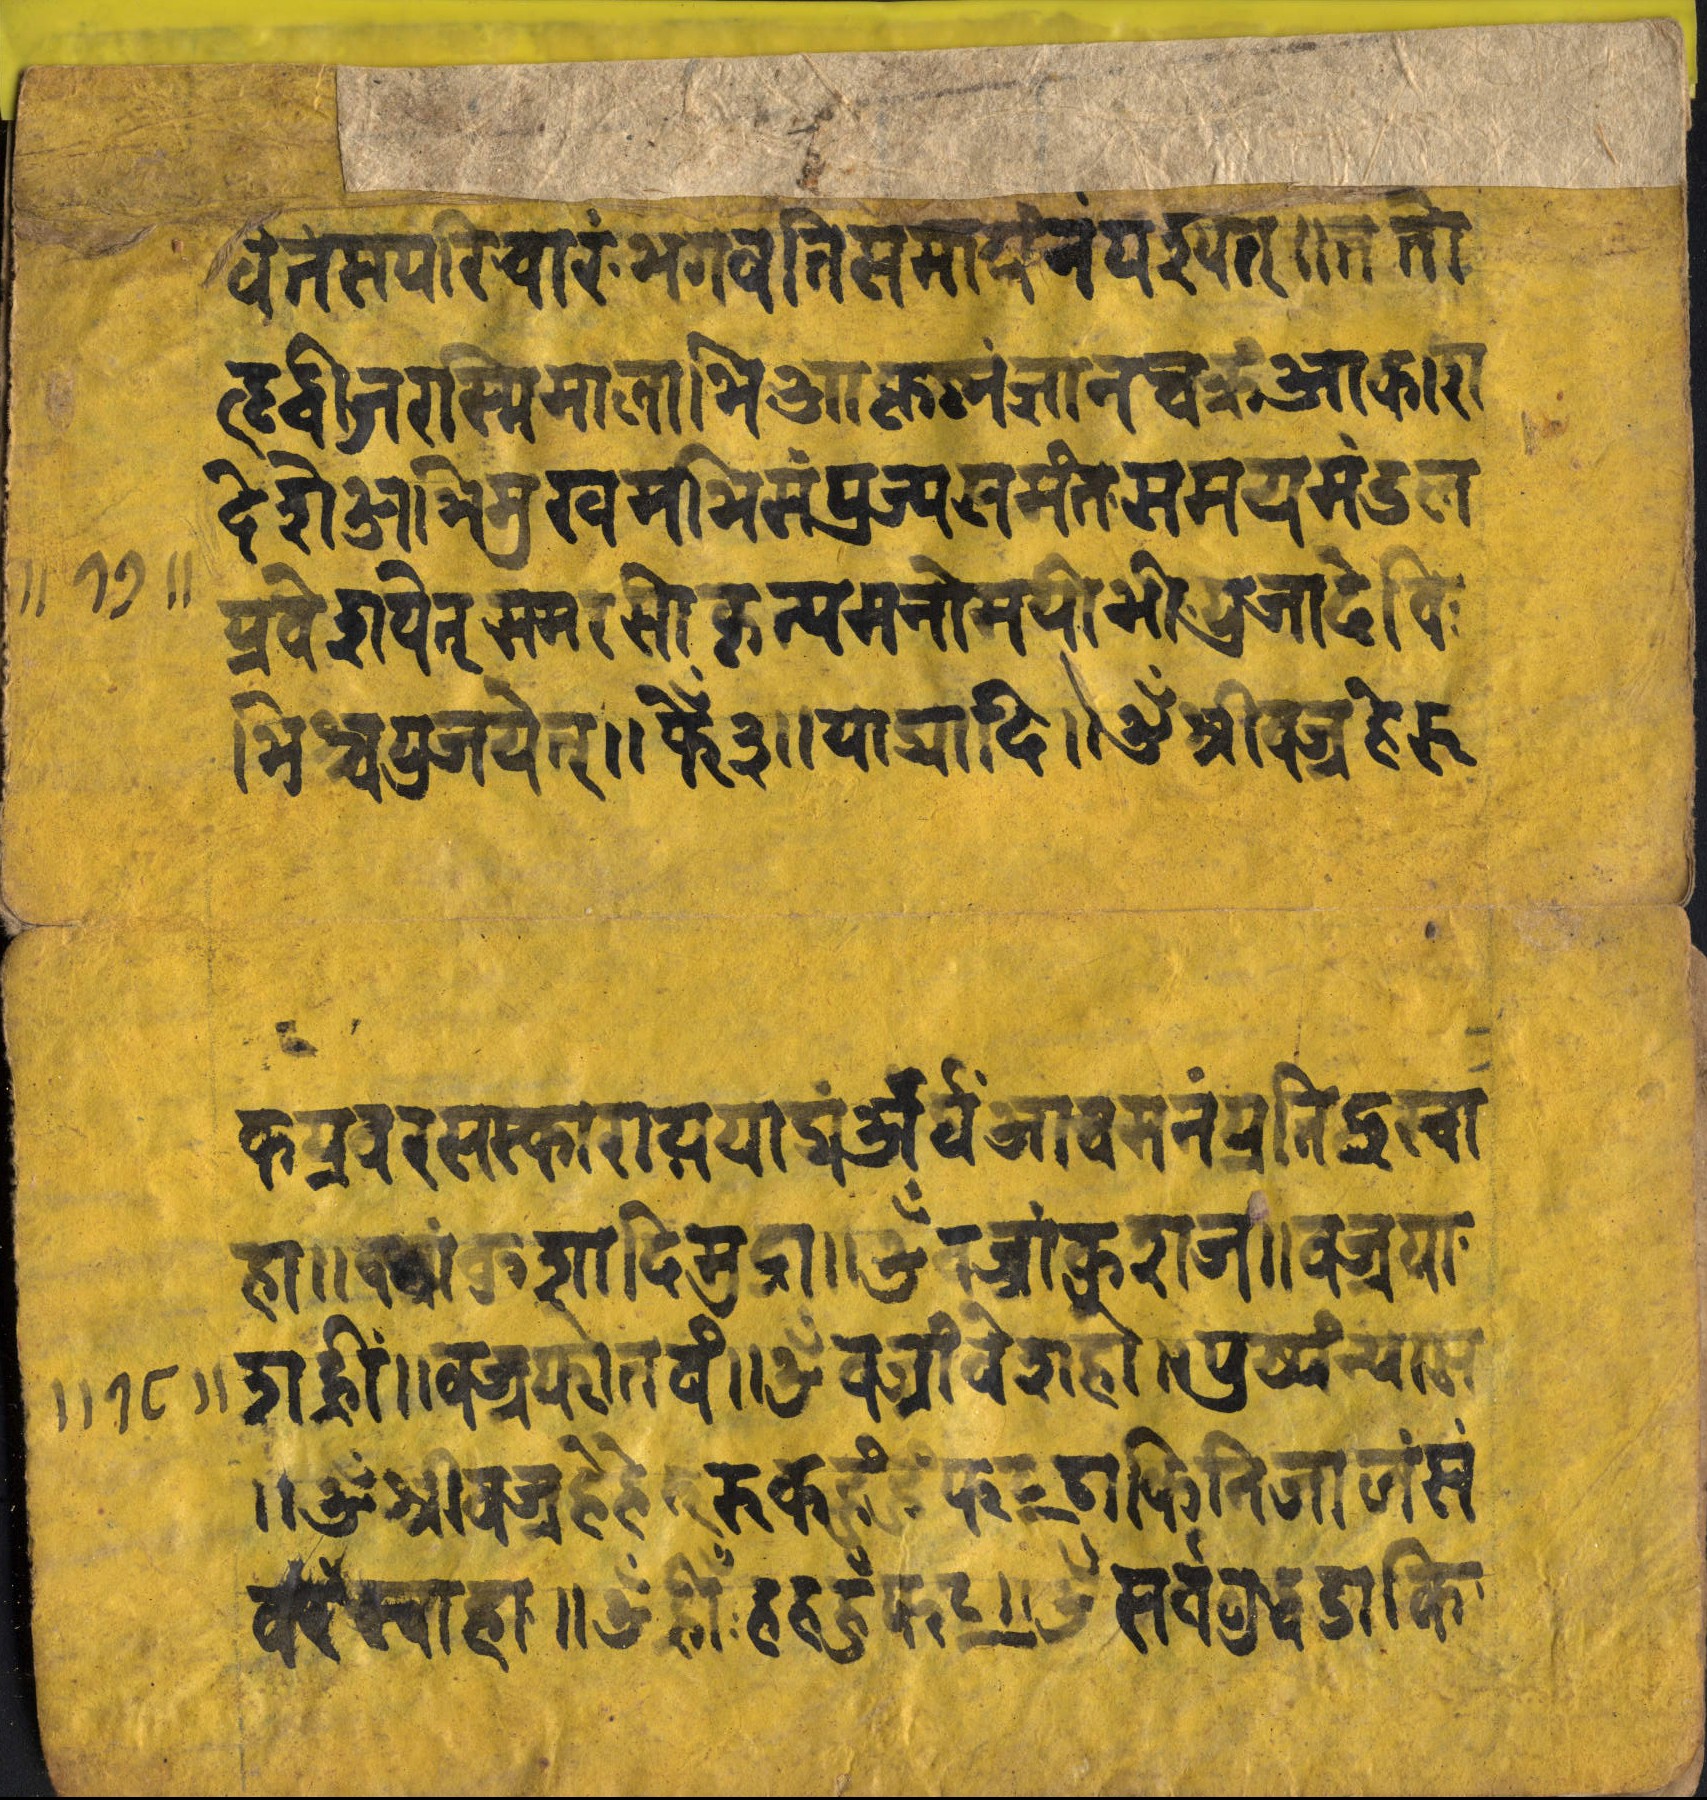 वनसपरिवारं भगवतिसमापंनं पश्यत् ॥ ततो
हृद्वीजरास्मिमालाभि आकृष्नं ज्ञानचक्रं आकारा
देशे अभिमुखमभिसंप्रज्यसमंत समयमंडल
॥ १७ ॥
प्रवेशयेत् समरसीकृत्य मनोमयीभी पुजादेवि
भिश्च पुजयेत् ॥ फेँ ३ ॥ पाद्यादि ॥ ॐ श्रीवज्रहेरू
कप्रवरसस्काराय पाद्यं अर्घं आचमनं प्रतिछस्वा
हा ॥ वज्रांकुशादिमुद्रा ॥ ॐ वज्रांकुशज ॥ वज्रपा
॥ १८ ॥
श ह्रीं ॥ वज्रफोतवं ॥ ॐ वज्रावेशहो ॥ पुष्पंन्यास
॥ ॐ श्रीवज्रहेहेरूरूकहुँहुँ फट् डाकिनिजाजंसं
वरं स्वाहा ॥ ॐ ह्रीँः हहहुँ फट् ॥ ॐ सर्वबुद्धडाकि